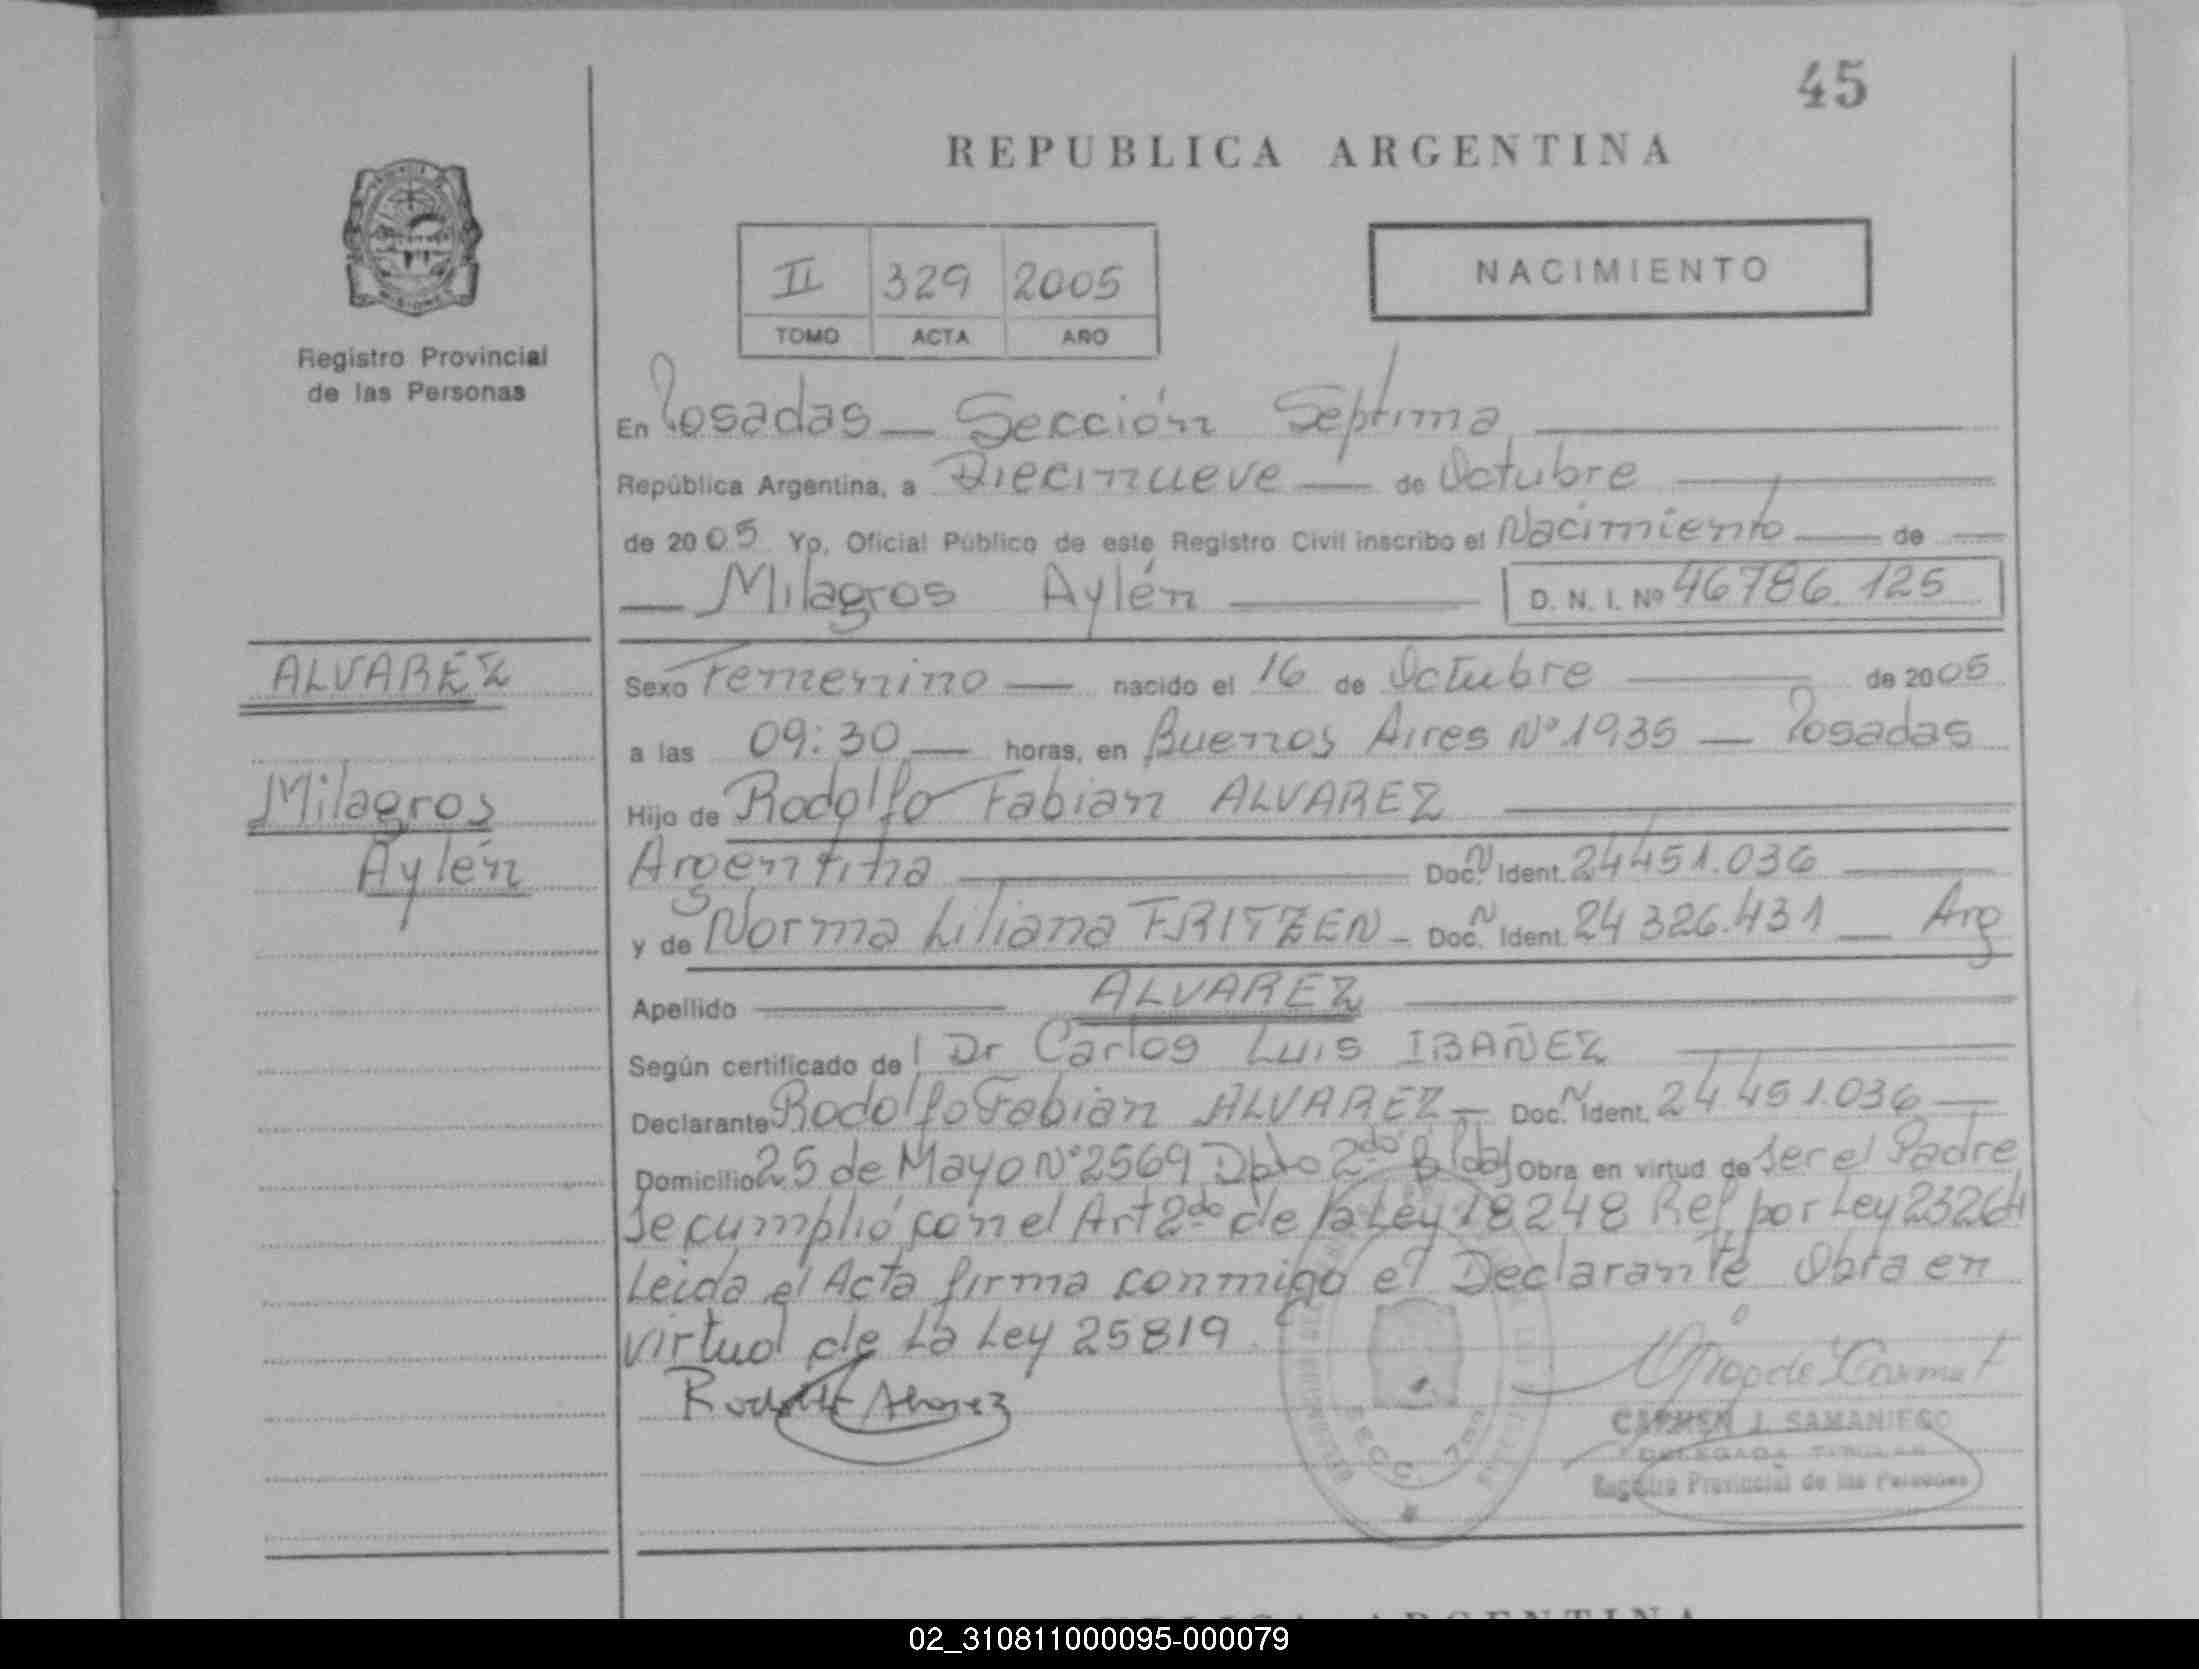 45
REPUBLICA ARGENTINA
II 329 2005
TOMO ACTA AÑO
NACIMIENTO
Registro Provincial
de las Personas
En Posadas — Sección Séptima
República Argentina, a Diecinueve — de Octubre
de 2005 Yo, Oficial Público de este Registro Civil inscribo el Nacimiento — de —
— Milagros Aylén — D. N. I. Nº 46786.125
ALVAREZ
Milagros
Aylén
Sexo Femenino — nacido el 16 de Octubre de 2005
a las 09:30 — horas, en Buenos Aires Nº 1935 — Posadas
Hijo de Rodolfo Fabian ALVAREZ
Argentina — Doc. N Ident. 24451.036 —
y de Norma Liliana FRITZEN - Doc. N Ident. 24326.431 — Arg
Apellido — ALVAREZ
Según certificado de Dr Carlos Luis IBAÑEZ
Declarante Rodolfo Fabian ALVAREZ — Doc. N Ident. 24451.036 —
Domicilio 25 de Mayo Nº 2569 Dpto 2do B Pdas Obra en virtud de Ser el Padre
Se cumplió con el Art 2do de la Ley 18248 Ref por Ley 23264
Leida el Acta firma conmigo el Declarante Obra en
virtud de La Ley 25819
Rodolfo Alvarez
CARMEN J. SAMANIEGO
DELEGADA TITULAR
Registro Provincial de las Personas
SECC. 7ma
02_310811000095-000079